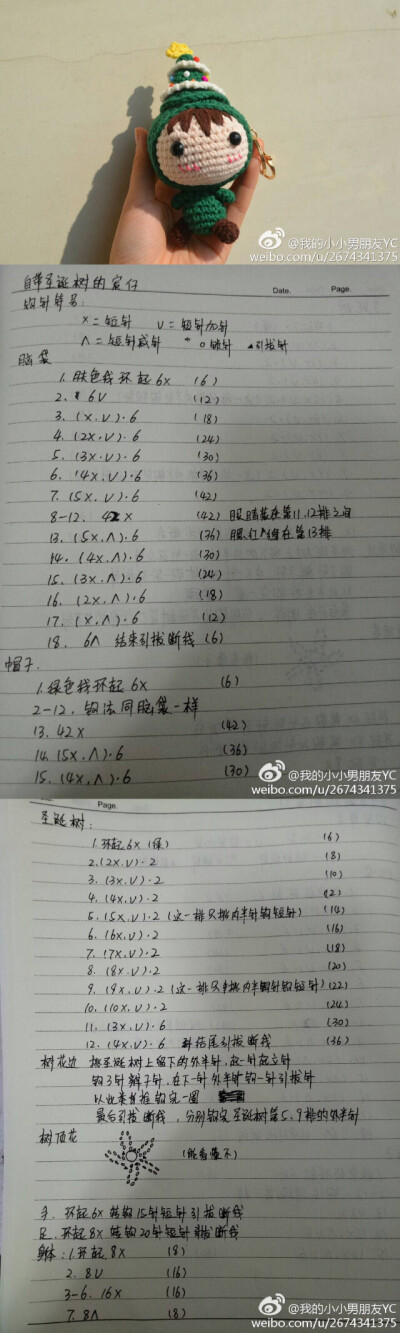 @我的小小男朋友YC
weibo.com/u/2674341375
Date. Page.
自带圣诞树的宝仔
钩针符号:
X=短针 V=短针加针
Λ=短针减针 o锁针 引拔针
脑袋
1.肤色线环起6X (6)
2. 6V (12)
3. (X.V)·6 (18)
4. (2X.V)·6 (24)
5. (3X.V)·6 (30)
6. (4X.V)·6 (36)
7. (5X.V)·6 (42)
8-12. 42X (42) 眼睛装在第11,12排之间
13. (5X.Λ)·6 (36) 腮红缝在第13排
14. (4X.Λ)·6 (30)
15. (3X.Λ)·6 (24)
16. (2X.Λ)·6 (18)
17. (X.Λ)·6 (12)
18. 6Λ 结束引拔断线 (6)
帽子.
1.绿色线环起6X (6)
2-12. 钩法同脑袋一样
13. 42X (42)
14. (5X.Λ)·6 (36)
15. (4X.Λ)·6 (30)
@我的小小男朋友YC
weibo.com/u/2674341375
Page.
圣诞树:
1.环起6X(绿) (6)
2.(2X.V)·2 (8)
3. (3X.V)·2 (10)
4. (4X.V)·2 (12)
5. (5X.V)·2 (这一排只挑内半针钩短针) (14)
6. (6X.V)·2 (16)
7. (7X.V)·2 (18)
8. (8X.V)·2 (20)
9. (9X.V)·2 (这一排只挑内半针钩短针) (22)
10. (10X.V)·2 (24)
11. (3X.V)·6 (30)
12. (4X.V)·6 结尾引拔断线 (36)
树花边 挑圣诞树上留下的外半针,起一针起立针
钩3针辫子针,在下一针外半针钩一针引拔针
以此类推钩完一圈
最后引拔断线,分别钩完圣诞树第5.9排的外半针
树顶花
(能看懂不)
手.环起6X 转钩15针短针引拔断线
足.环起8X 转钩20针短针引拔断线
身体:1.环起8X (8)
2. 8V (16)
3-6. 16X (16)
7. 8Λ (8)
@我的小小男朋友YC
weibo.com/u/2674341375